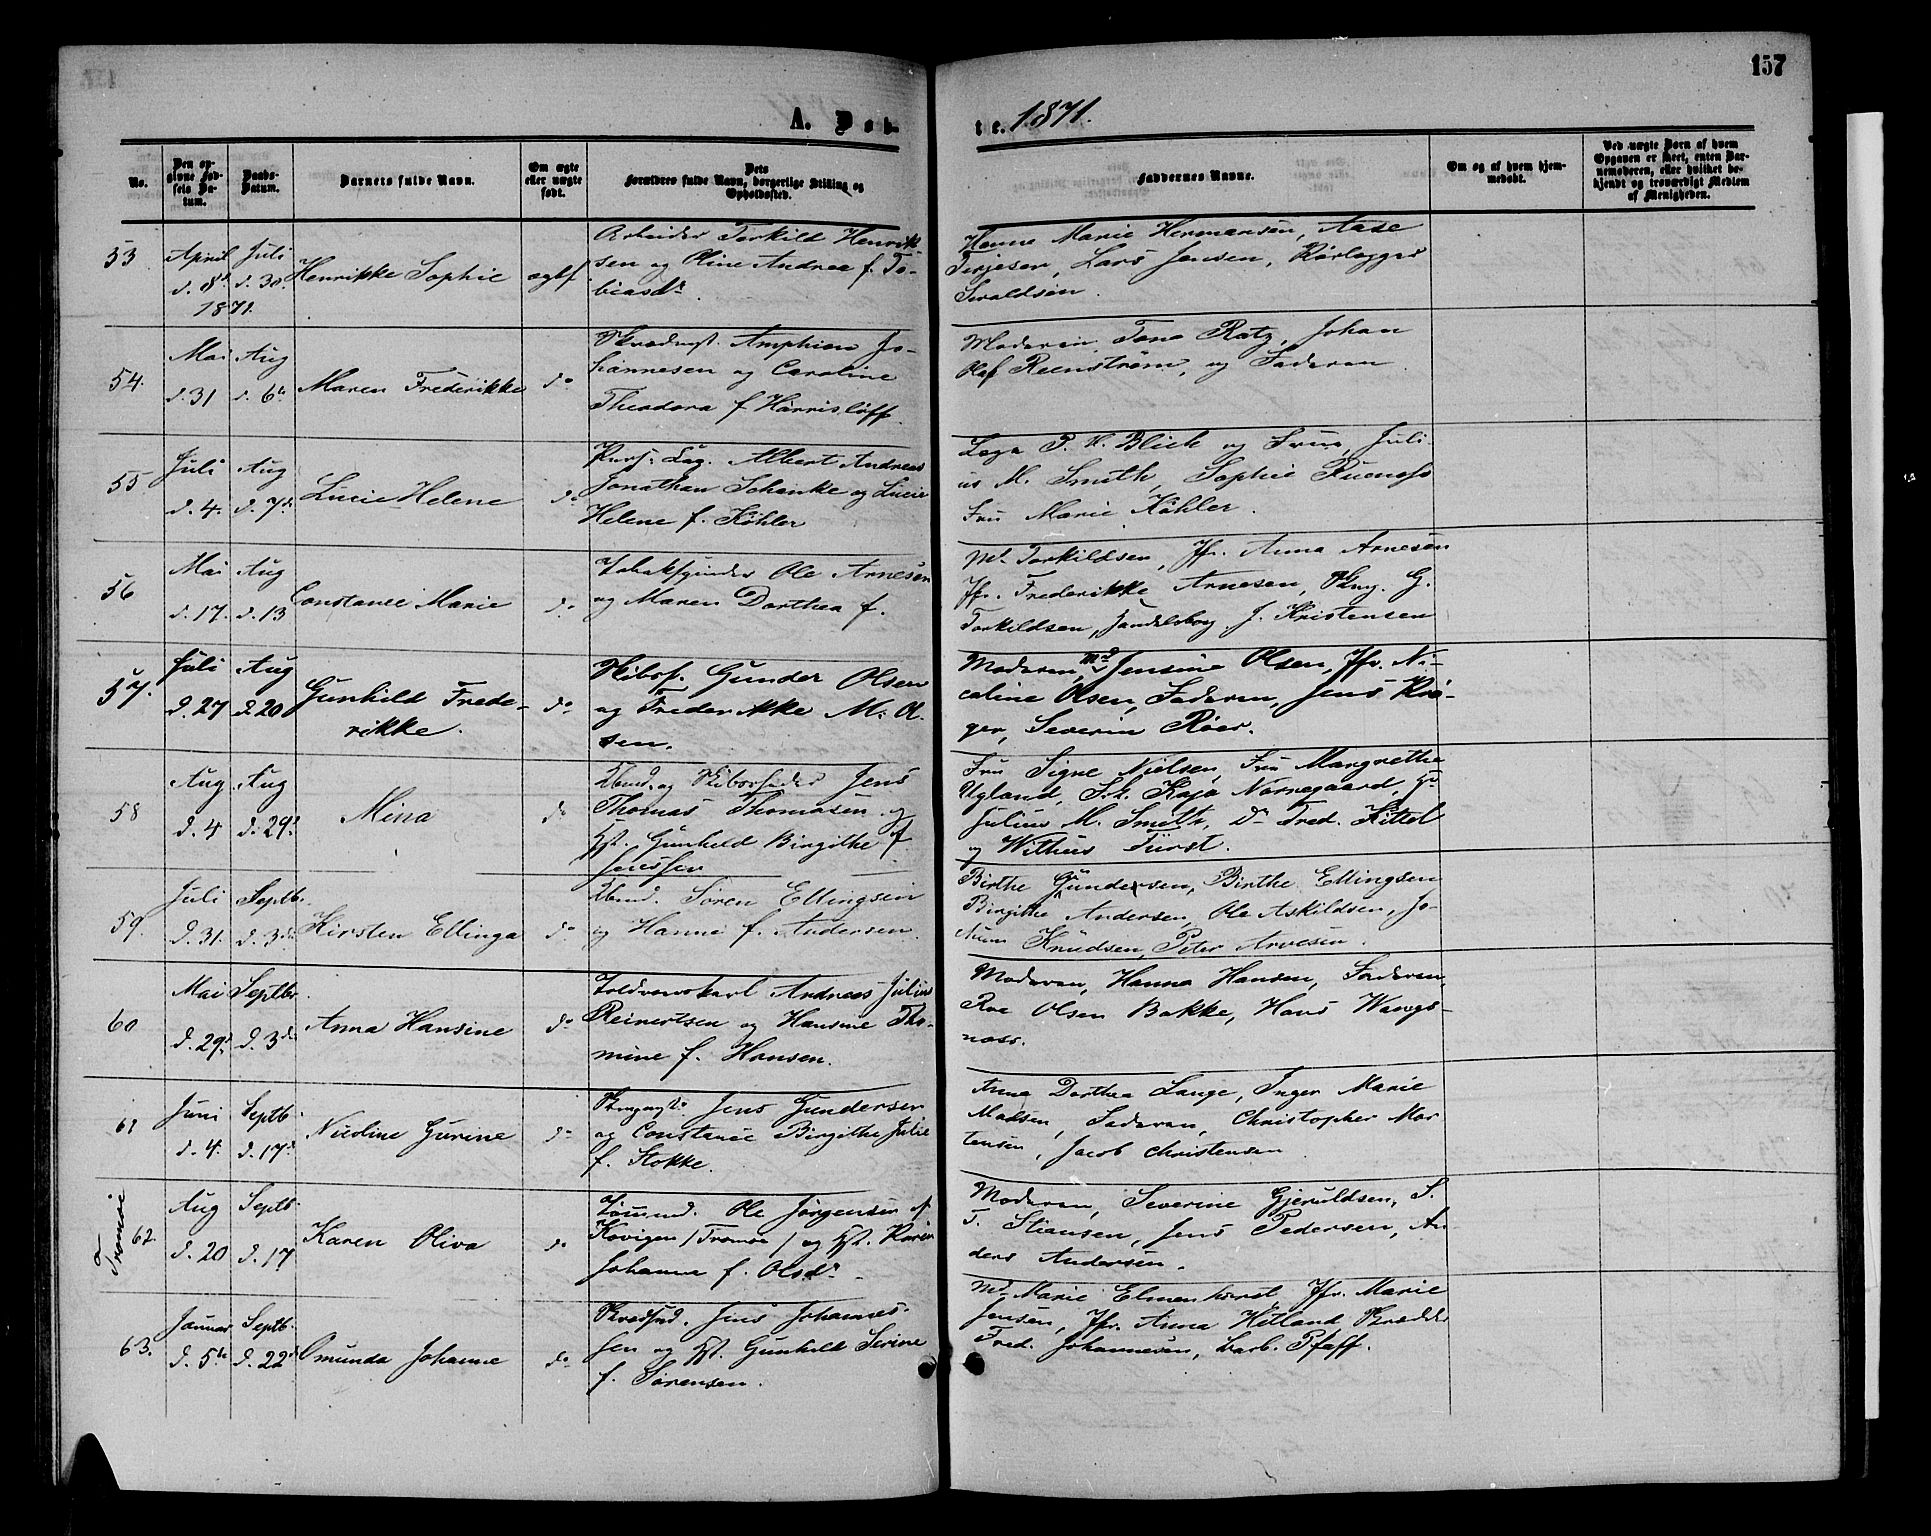 157
A. Døb-
te. 1871.
No.
Den opgivne Fødsels Datum.
Daabs-Datum.
Barnets fulde Navn.
Om ægte eller uægte født.
Dets Forældres fulde Navn, borgerlige Stilling og Opholdssted.
Faddernes Navne.
Om og af hvem hjemmedøbt.
Ved uægte Børn af hvem Opgaven er skeet, enten Barnemoderen, eller hvilket bekjendt og troværdigt Medlem af Menigheden.
53
April d. 8d. 1871.
Juli d. 30.
Henrikke Sophie
ægtf
Arbeider Torkild Henrik-
sen og Oline Andrea f. To-
biasdr.
Hanne Marie Hermansen, Aase
Terjesen, Lars Jensen, Rørlægger
Sivaldsen.
54.
Mai d. 31
Aug d. 6te
Maren Frederikke
do
Amphion Jo-
hannesen og Caroline
Theodora f. Harrisløff.
Moderen, Tona Ratz, Johan
Olaf Reenstrøm, og Faderen.
55.
Juli d. 4.
Aug d. 7de
Lucie Helene
do
Albert Andreas
Jonathan Schanke og Lucie
Helene f. Köhler
Læge P. H. Blich og Frue, Juli
us M. Smith, Sophie Ruenæss
Fru Marie Köhler.
56
Mai d. 17.
Aug d. 13
Constance Marie
do
Tobakspinder Ole Arnesen
og Maren Dorthea f.
Md. Torkildsen, Jfr. Anna Arnesen
Jfr. Frederikke Arnesen, G.
Torkildsen, Handelsborg. J. Kristensen
57.
Juli d. 27
Aug d. 20
Gunhild Frede-
rikke.
do
Skibsf. Gunder Olsen
og Frederikke M. Ol-
sen.
Moderen, Md Jensine Olsen, Jfr. Ni-
coline Olsen, Faderen, Jens Krø-
ger, Severin Röer.
58
Aug d. 4
Aug d. 29d.
Mina
do
Kbmd. og Skibsrheder Jens
Thomas Thomasen og
Hst. Gunhild Birgithe f
Jenssen
Fru Signe Nielsen, Fru Margrethe
Ugland, Frk. Kaja Nørregaard, Hr
Julius M. Smith, Do Fred. Kittel
og Wilhus Fürst.
59.
Juli d. 31.
Septb. d. 3die
Kirsten Ellinga
do
Kbmd. Søren Ellingsen
og Hanne f. Andersen.
Birthe Gundersen, Birthe Ellingsen
Birgithe Andersen, Ole Askildsen, Jo-
Knudsen, Peter Arvesen.
60
Mai d. 29d.
Septbr. d. 3die
Anna Hansine
do
Toldroerskarl Andreas Julius
Reinertsen og Hansine Tho-
mine f. Hansen.
Moderen, Hanna Hansen, Faderen,
Roe Olsen Bakke, Hans Wangs-
næss.
61
Juni d. 4.
Septb. d. 17d.
Nicoline Gurine
do
Jens Gundersen
og Constance Birgithe Julie
f. Stokke.
Anna Dorthea Lange, Inger Marie
Madsen, Faderen, Christopher Mor
tensen, Jacob Christensen
Tromøe
62
Aug d. 20
Septb. d. 17
Karen Oliva
do
Tømmd. Ole Jørgensen af
Kovigen /Tromøe/ og Hst. Karen
Johanne f. Olsdr.
Moderen, Severine Gjeruldsen, S.
T. Stiansen, Jens Pedersen, An
ders Andersen.
63.
Januar d. 5te
Septb. d. 22d
Omunda Johanne
do
Jens Johannes-
sen og Hst. Gunhild Serine
f. Sørensen.
Md. Marie Elmenhorst, Jfr. Marie
Jensen, Jfr. Anna Hetland, Skrædder
Fred. Johannesen, Barb. Pfaff.